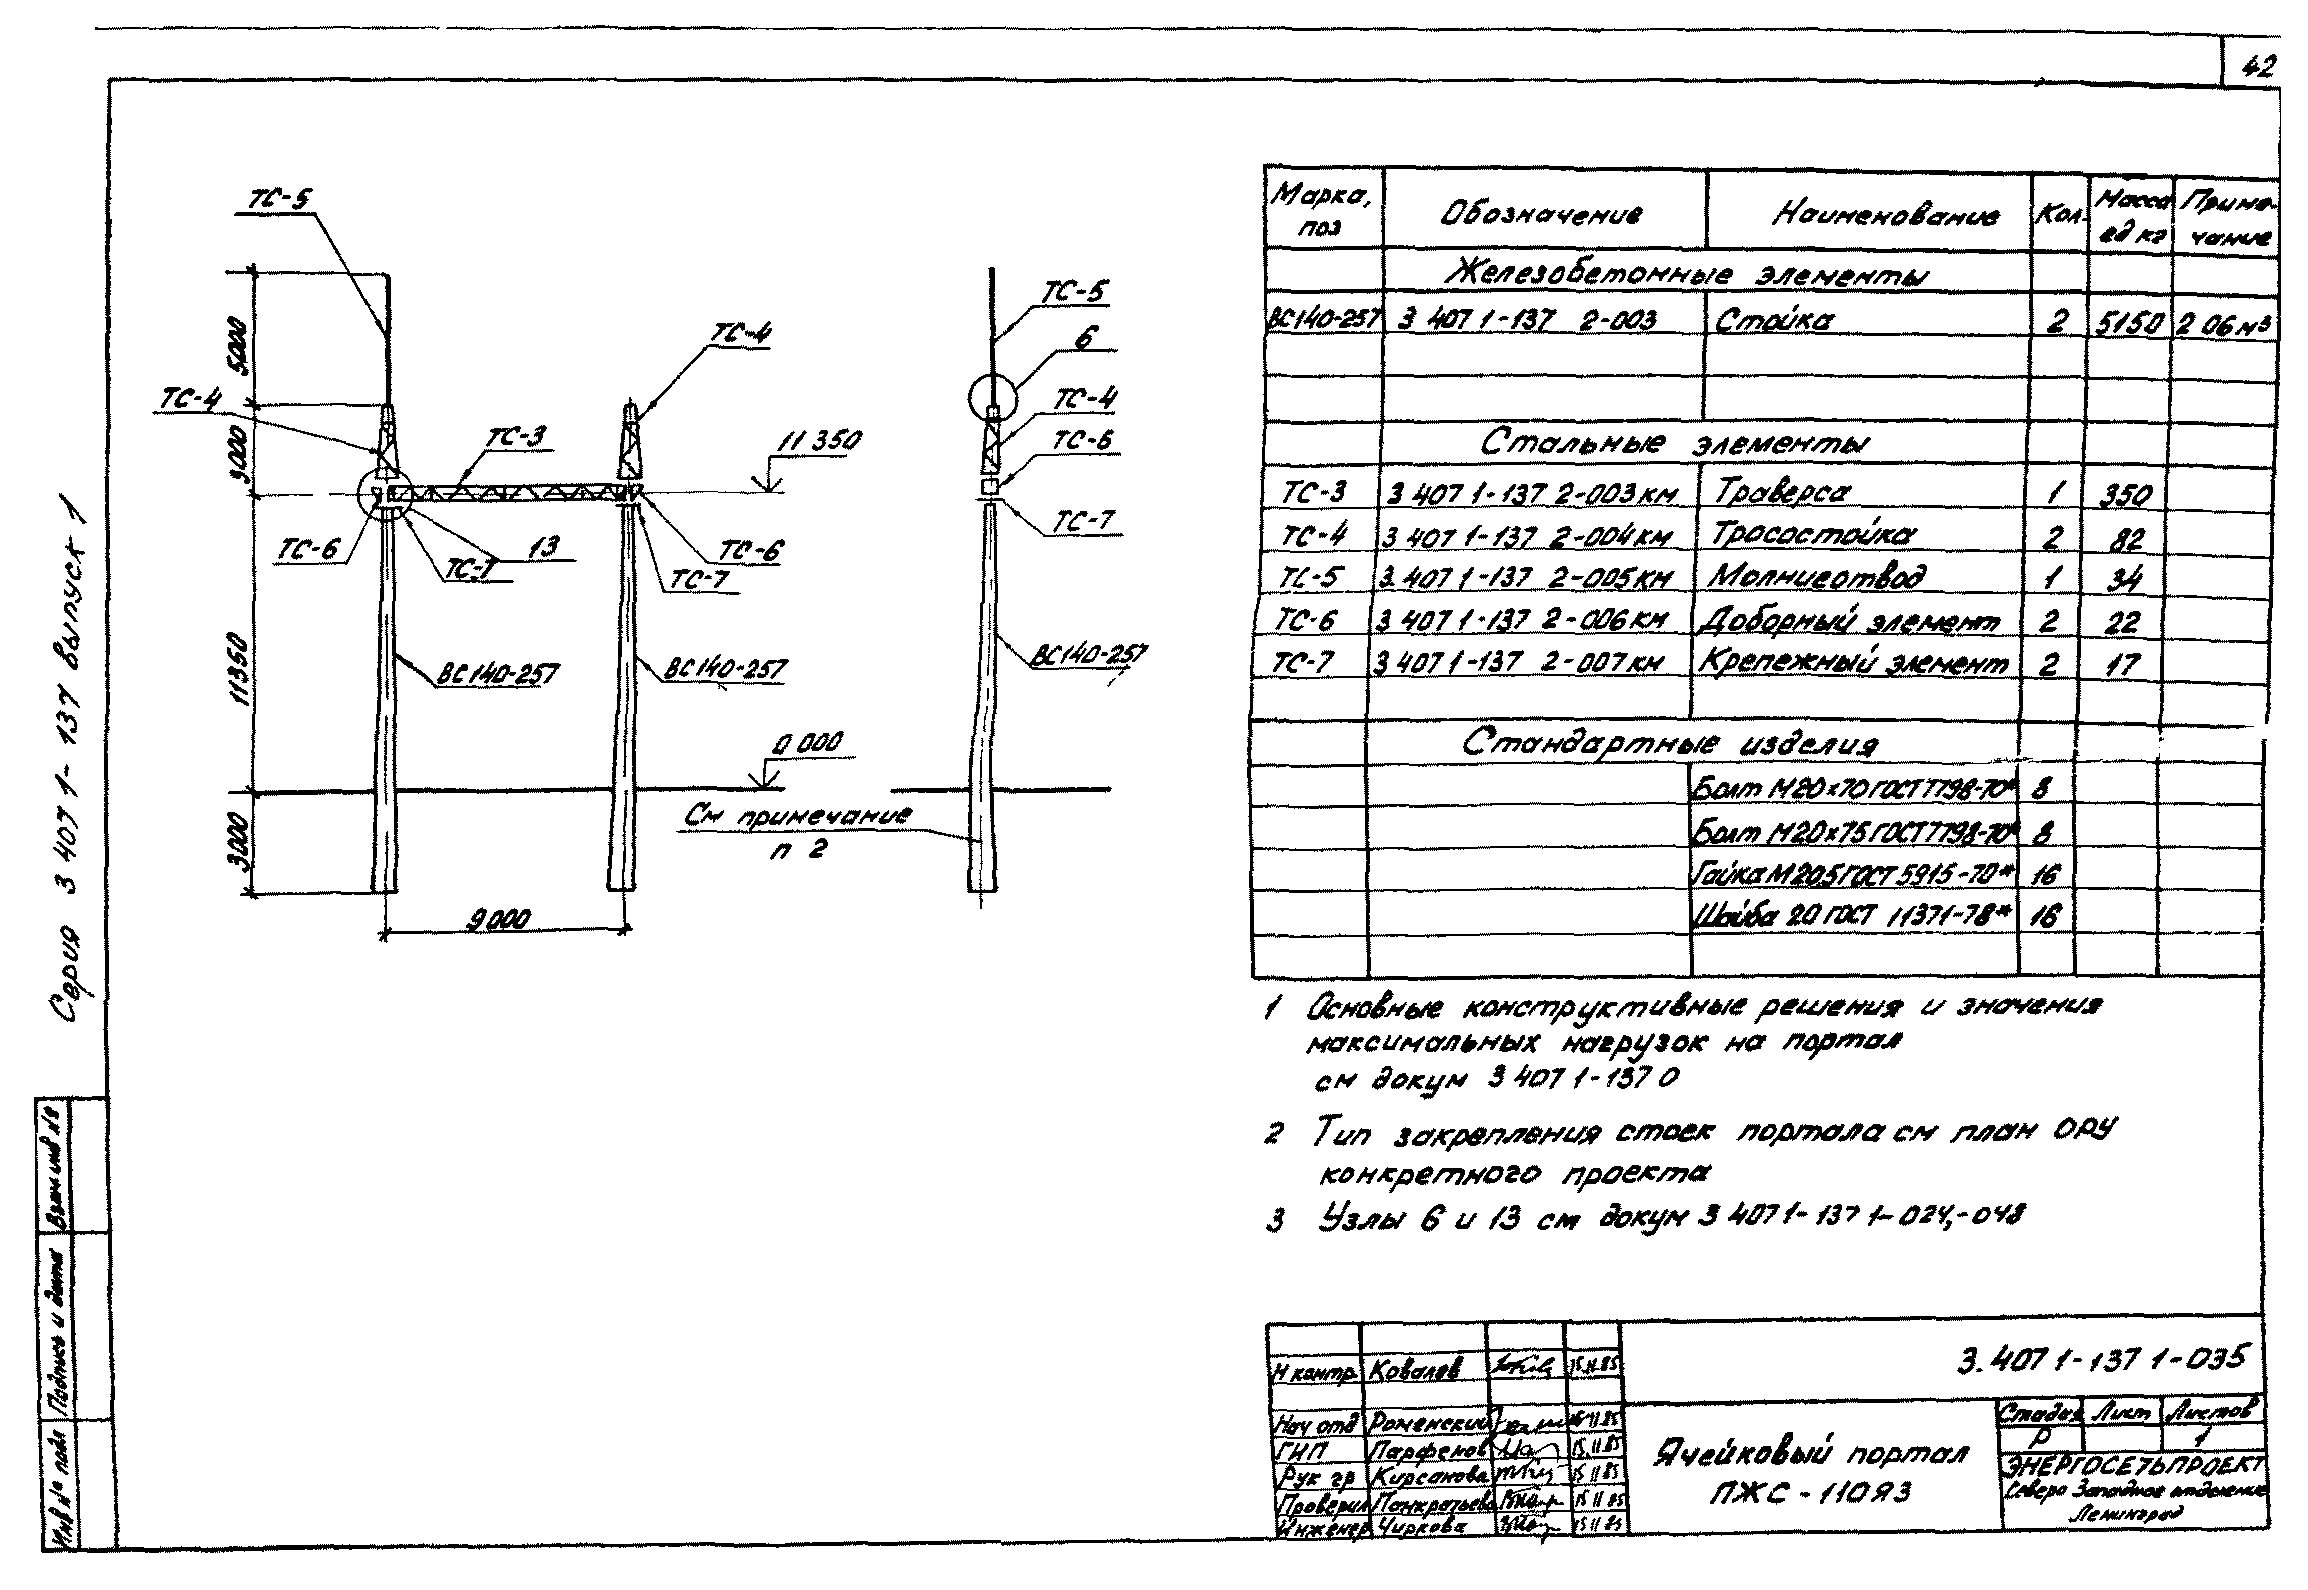 42
Серия 3 407 1-137 выпуск 1
ТС-5
5000
ТС-4
3000
ТС-3
ТС-4
11 350
ТС-6
13
ТС-7
ТС-6
ТС-7
11350
ВС140-257
ВС140-257
0 000
3000
См примечание
п 2
9000
ТС-5
6
ТС-4
ТС-6
ТС-7
ВС140-257
Марка, поз Обозначение Наименование Кол. Масса ед кг Примечание
Железобетонные элементы
ВС140-257 3 407 1-137 2-003 Стойка 2 5150 2 06 м3
Стальные элементы
ТС-3 3 407 1-137 2-003км Траверса 1 350
ТС-4 3 407 1-137 2-004км Тросостойка 2 82
ТС-5 3.407 1-137 2-005км Молниеотвод 1 34
ТС-6 3 407 1-137 2-006км Доборный элемент 2 22
ТС-7 3 407 1-137 2-007км Крепежный элемент 2 17
Стандартные изделия
Болт М20х70 ГОСТ 7798-70* 8
Болт М20х75 ГОСТ 7798-70* 8
Гайка М20.5 ГОСТ 5915-70* 16
Шайба 20 ГОСТ 11371-78* 16
1 Основные конструктивные решения и значения
максимальных нагрузок на портал
см докум 3 407 1-137 0
2 Тип закрепления стоек портала см план ОРУ
конкретного проекта
3 Узлы 6 и 13 см докум 3 407 1-137 1-024,-048
Взам инв №
Подпись и дата
Инв № подл
Н контр Ковалев 15.11.85
Нач отд Роменский 15 11 85
ГИП Парфенов 15.11 85
Рук гр Кирсанова 15 11 85
Проверил Панкратьева 15 11 85
Инженер Чиркова 15 11 85
3.407 1-137 1-035
Ячейковый портал
ПЖС-110Я3
Стадия Лист Листов
Р 1
ЭНЕРГОСЕТЬПРОЕКТ
Северо Западное отделение
Ленинград